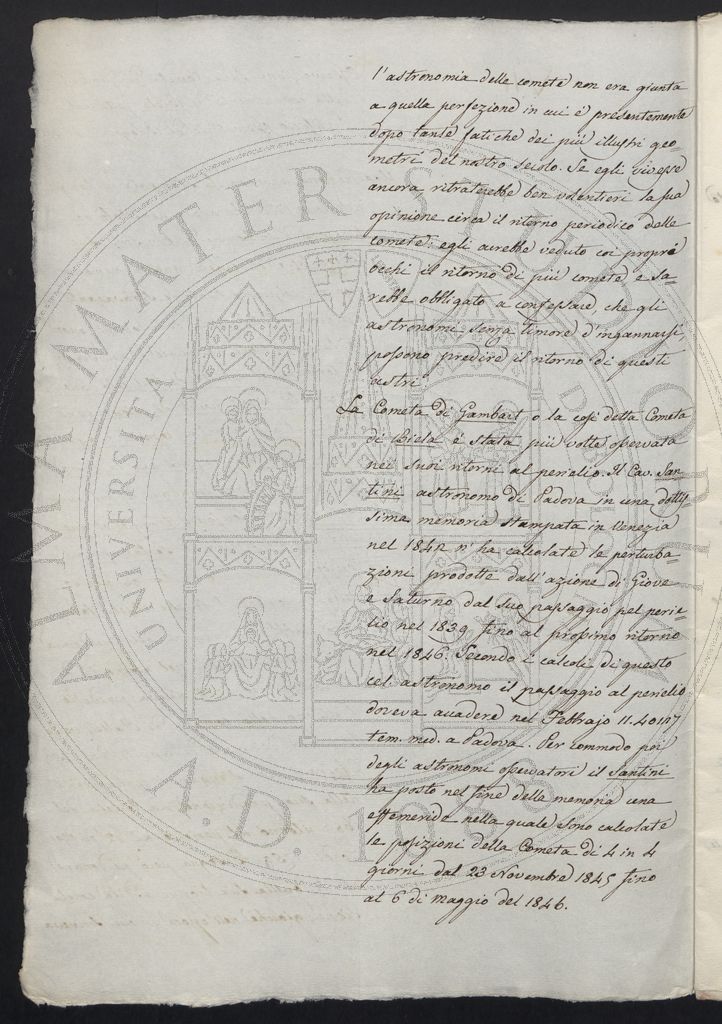 l'astronomia delle comete non era giunta
a quella perfezione in cui è presentemente
dopo tante fatiche dei più illustri geo=
metri del nostro secolo. Se egli vivesse
ancora ritratterebbe ben volentieri la sua
opinione circa il ritorno periodico delle
comete: egli avrebbe veduto coi proprî
occhi il ritorno di più comete e sa=
rebbe obbligato a confessare, che gli
astronomi senza timore d'ingannarsi,
possono predire il ritorno di questi
astri.
La Cometa di Gambart o la così detta Cometa
di Biela è stata più volte osservata
nei suoi ritorni al perielio. Il Cav. San=
tini astronomo di Padova in una dottis
sima memoria stampata in Venezia
nel 1842 n'ha calcolate le perturba=
zioni prodotte dall'azione di Giove
e Saturno dal suo passaggio pel perie=
lio nel 1839 fino al prossimo ritorno
nel 1846. Secondo i calcoli di questo
cel. astronomo il passaggio al perielio
doveva accadere nel Febbrajo 11.40117
tem. med. a Padova. Per commodo poi
degli astronomi osservatori il Santini
ha posto nel fine della memoria una
effemeride nella quale sono calcolate
le posizioni della Cometa di 4 in 4
giorni dal 23 Novembre 1845 fino
al 6 di maggio del 1846.
ALMA MATER STUDIORUM
UNIVERSITÀ
A.D. 1088